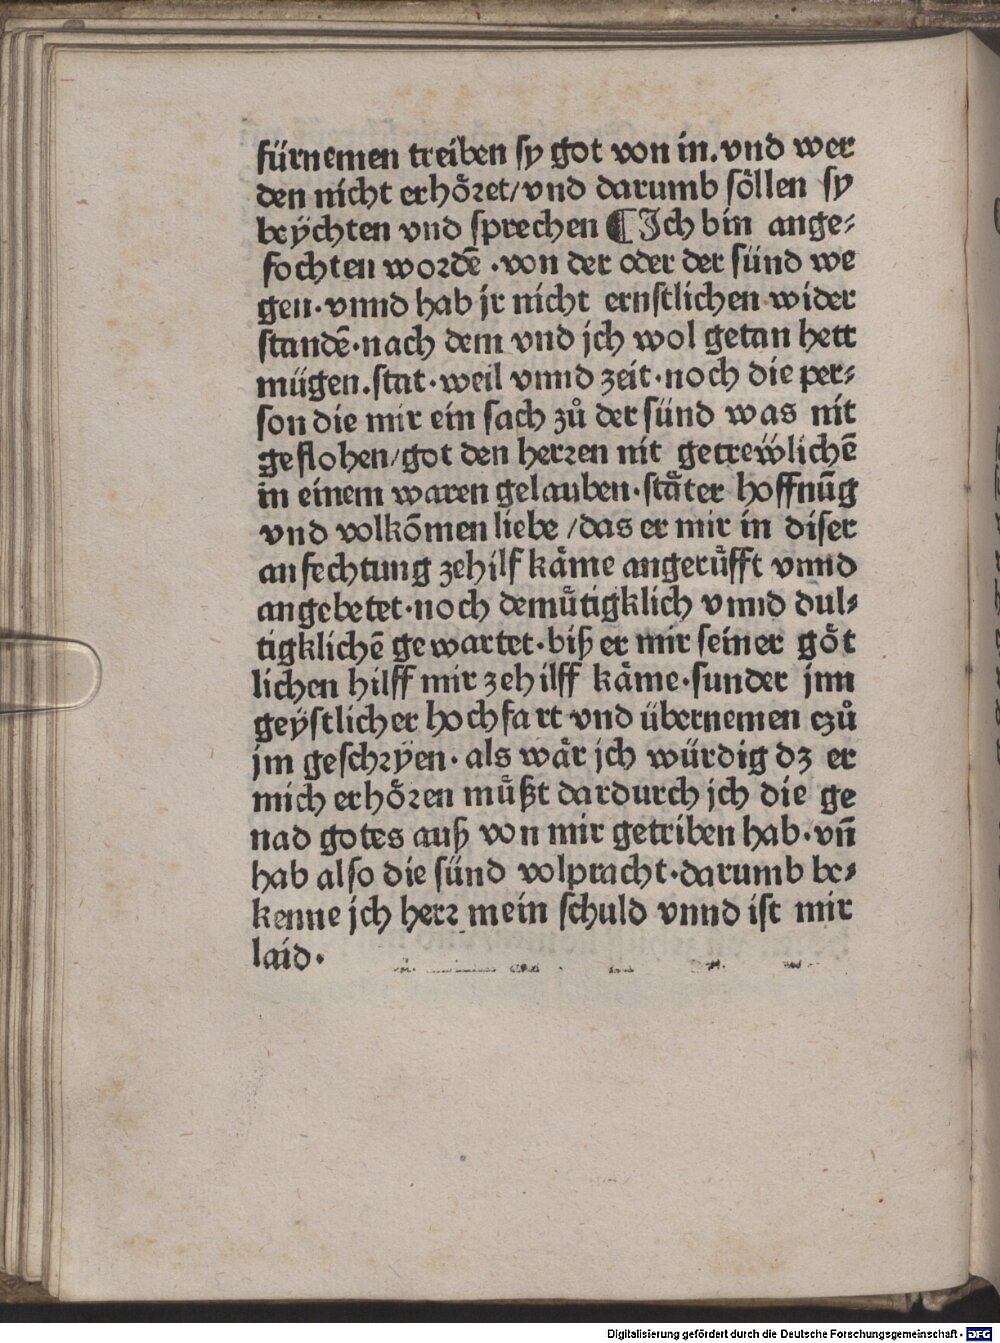 fürnemen treiben sy got von in. vnd wer
den nicht erhöꝛet/ vnd darumb söllen sy
beÿchten vnd sprechen ¶ Ich bin ange⸗
fochten woꝛdē ·von der oder der sünd we
gen· vnnd hab jr nicht ernstlichen wider
standē·nach dem vnd jch wol getan hett
mügen.stat·weil vnnd zeit·noch die per⸗
son die mir ein sach zů der sünd was nit
geflohen/got den herꝛen nit getreẅlichē
in einem waren gelauben·stäter hoffnūg
vnd volkōmen liebe /das er mir in diser
anfechtung zehilf käme angerůfft vnnd
angebetet·noch demůtigklich vnnd dul⸗
tigklichē gewartet·biß er mir seiner göt
lichen hilff mir zehilff käme·sunder jnn
geÿstlicher hochfart vnd übernemen czů
jm geschꝛÿen· als wär jch würdig dz er
mich erhöꝛen můßt dardurch jch die ge
nad gotes auß von mir getriben hab·vn̄
hab also die sünd volpracht·darumb be⸗
kenne jch herꝛ mein schuld vnnd ist mir
laid·
Digitalisierung gefördert durch die Deutsche Forschungsgemeinschaft - DFG